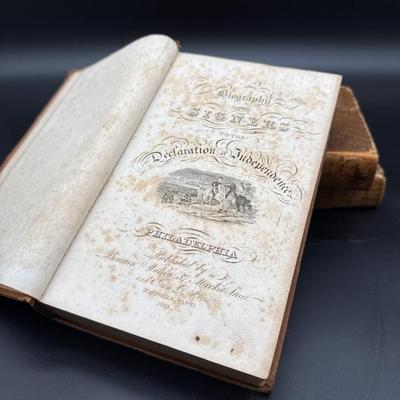 Biography
OF THE
SIGNERS
TO THE
Declaration of Independence
PHILADELPHIA
Published by
Market Street